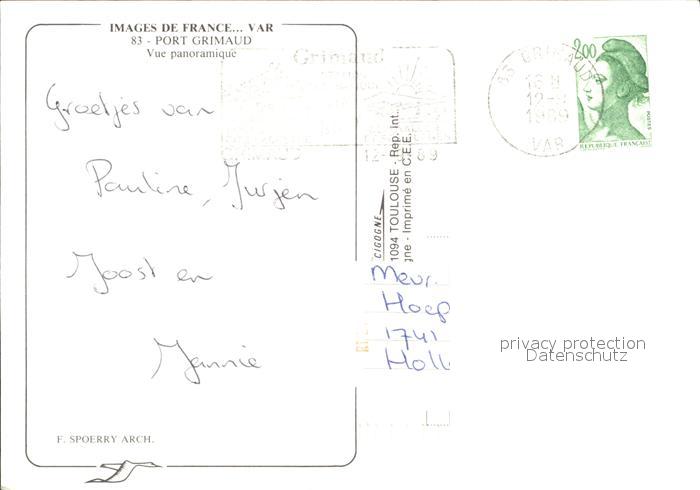 IMAGES DE FRANCE... VAR
83 - PORT GRIMAUD
Vue panoramique
Groetjes van
Pauline, Jurjen
Joost en
Jannie
F. SPOERRY ARCH.
Grimaud
CIGOGNE
1094 TOULOUSE - Rep. Int...
gne - Imprimé en C.E.E.
83 GRIMAUD
16 H
12-
1989
VAR
2,00
POSTES
REPUBLIQUE FRANÇAISE
Mevr.
Hoep
1741
Holl
privacy protection
Datenschutz